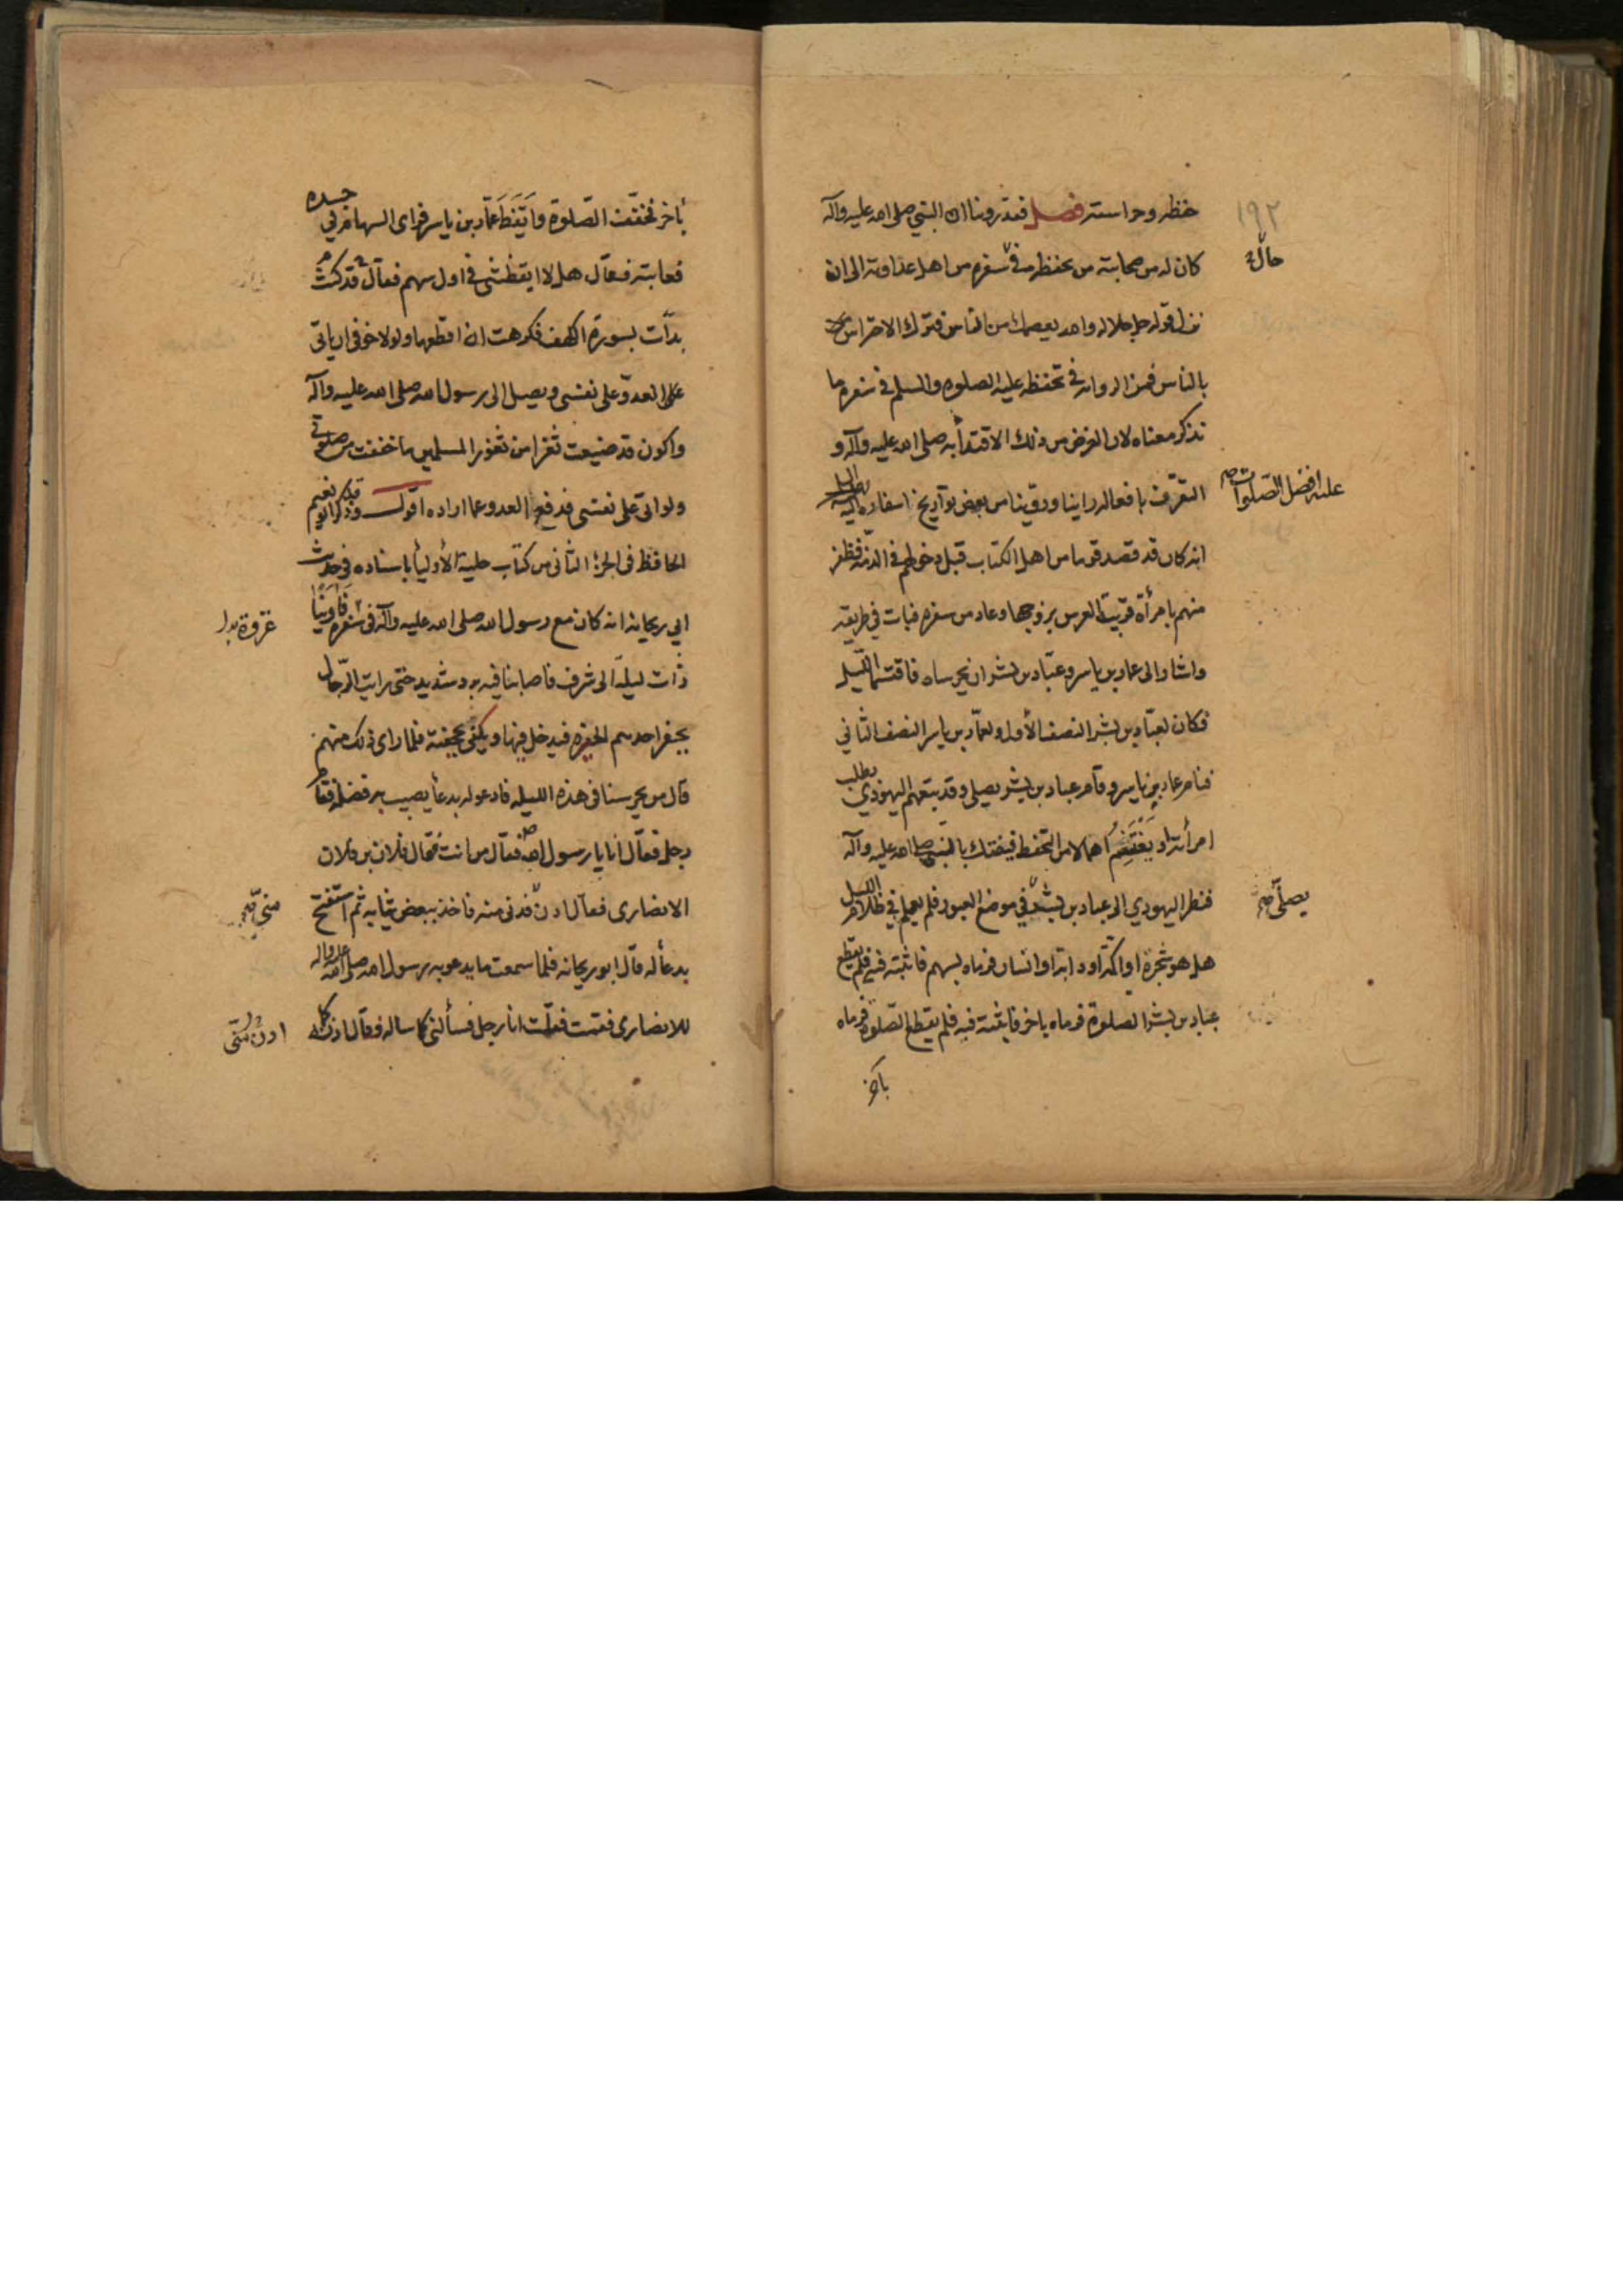 ١٩٢
حفظه وحراسته فصل فقد روينا ان النبي صلى الله عليه وآله
كان له من صحابته من يحفظه في سفره من اهل عداوته الى ان
حال
نزل قوله جل جلاله والله يعصمك من الناس فترك الاحتراس
بالناس فمن الروايه في تحفظه عليه الصلوه والسلم في سفره ما
نذكر معناه لان الغرض من ذلك الاقتدأ به صلى الله عليه وآله و
التعرّف بافعاله راينا وروينا من بعض تواريخ اسفاره
عليه افضل الصلوات
انه كان قد قصد قوما من اهل الكتاب قبل دخولهم في الذمّه فظفر
منهم بامرأة قريبة العرس بزوجها وعاد من سفره فبات في طريقه
واشار الى عمار بن ياسر وعبّاد بن بشر ان يحرساه فاقتسما الليل
فكان لعبّاد بن بشر النصف الأول ولعمّار بن ياسر النصف الثاني
فنام عمار بن ياسر وقام عباد بن بشر يصلي وقد تبعهم اليهودي يطلب
امرأته او يغتنم اهمالا من التحفظ فيفتك بالنبي صلى الله عليه وآله
فنظر اليهودي الى عباد بن بشر في موضع العبور فلم يعلم في ظلام الليل
يصلّي صح
هل هو شجرة او اكمة او دابة او انسان فرماه بسهم فاثبته فيه فلم يقطع
عباد بن بشر الصلوة فرماه باخر فاثبته فيه فلم يقطع الصلوة فرماه
بآخر
بأخر فخفف الصّلوة وايقظ عمّار بن ياسر فراى السهام في جسده
فعاتبه فقال هلا ايقظتني في اول سهم فقال قد كنت
بدأت بسورة الكهف فكرهت ان اقطعها ولولا خوفي ان ياتي
على العدو على نفسي ويصل الى رسول الله صلى الله عليه وآله
واكون قد ضيعت ثغرا من ثغور المسلمين ما خففت من صلوتي
ولو اتى على نفسي فدفع العدو عما اراده اقول وقد ذكر ابو نعيم
الحافظ في الجزء الثاني من كتاب حلية الأوليأ باسناده في حديث
ابي ريحانة انه كان مع رسول الله صلى الله عليه وآله في سفره فاوينا
غزوة بدل
ذات ليلة الى شرف فاصابنا فيه برد شديد حتى رايت الرّجال
يحفر احدهم الحفره فيدخل فيها ويكفى بحجفته فلما راى ذلك منهم
قال من يحرسنا في هذه الليله فادعو له بدعأ يصيب به فضله فقام
رجل فقال انا يا رسول الله فقال من انت فقال فلان بن فلان
الانصاري فقال ادن فدنى منه فاخذ ببعض ثيابه ثم استفتح
بدعأ له قال ابو ريحانه فلما سمعت ما يدعو به رسول الله صلى الله عليه واله
للانصاري فقمت فقلت انا رجل فسألني كما ساله فقال ادن كما له
ادن منّي